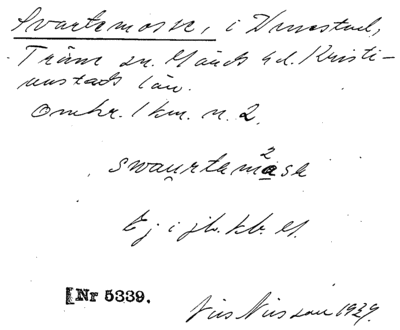 Svartemosse, i Drustad,
Träne sn. Gärds hd. Kristi-
anstads län.
Omkr. 1 km. n. 2.
swau̯rtemåsa
Ej i jb. kb. El.
[Nr 5339.
Nils Nilsson 1929.